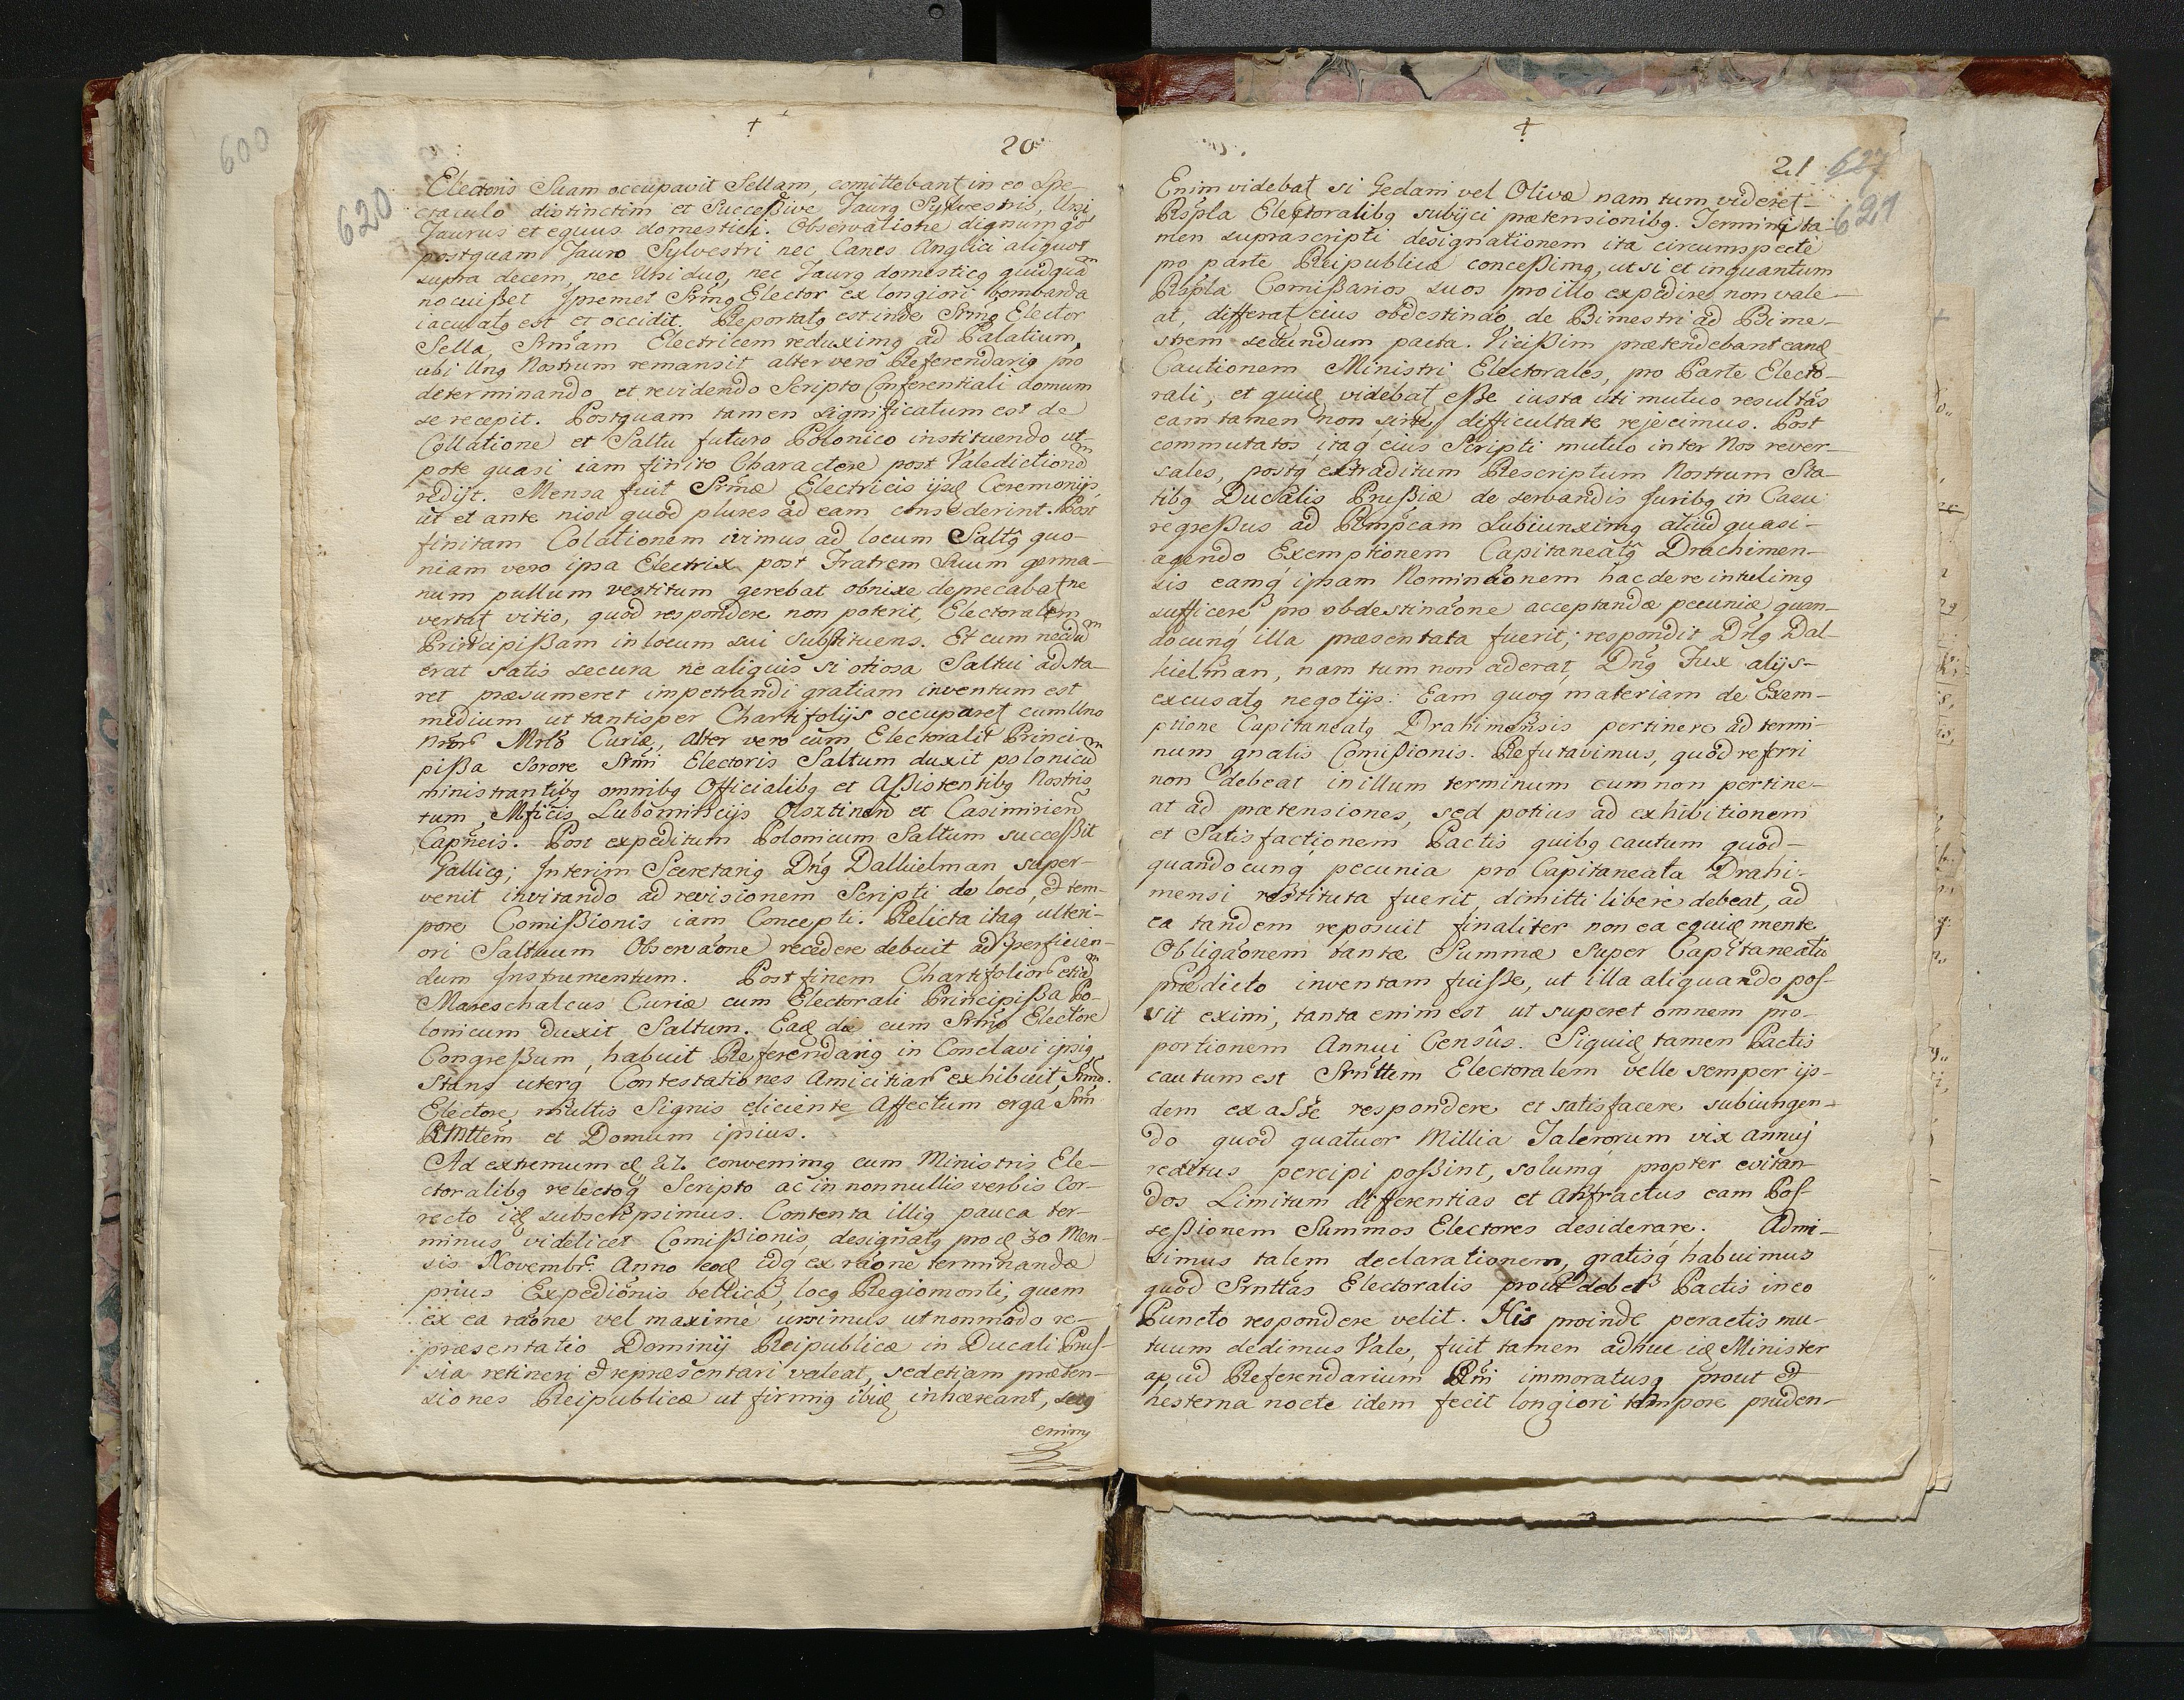 600
620
†
20
Electoris Suam occupavit Sellam, comittebant in eo Spe-
ctaculo distinctim et Succeßive Taurg Sylvestris, Ursi
Taurus et equus domestici. Observatione dignum qd
postquam Tauro Sylvestri nec Canes Anglici aliquot
supra decem, nec Ursi duo, nec Taurg domesticg quidqua
nocuißet Ipsemet Srmg Elector ex longiori bombarda
iaculatg est et occidit. Reportatg est inde Srmg Elector
Sella, Srmam Electricem reduximg ad Palatium,
ubi Ung Nostrum remansit alter vero Referendarig pro
determinando et revidendo Scripto Conferentiali domum
se recepit. Postquam tamen significatum est de
Collatione et Saltu futuro Polonico instituendo ut-
pote quasi iam finito Charactere post Valediction
redijt. Mensa fuit Srmæ Electricis ijsd Ceremonijs,
ut et ante nisi quod plures ad eam consederint. Post
finitam Colationem ivimus ad locum Saltg quo-
niam vero ipsa Electrix post Fratrem Suum germa-
num pullum vestitum gerebat obnixe deprecabat ne
vertat vitio, quod respondere non poterit, Electoralem
Principißam in locum sui Substituens. Et cum necdu
erat satis secura ne aliquis si otiosa Saltui adsta-
ret præsumeret impetrandi gratiam inventum est
medium ut tantisper Chartifolijs occuparet cum Uno
nror Mrls Curiæ, alter vero cum Electorali Princi-
pißa Sorore Srmi Electoris Saltum duxit polonicu
ministrantibg omnibg Officialibg et Aßistentibg Nostris
tum, Mficis Lubomirscijs Olsztinen et Casimirien
Capneis. Post expeditum Polonicum Saltum succeßit
Gallicg; Interim Secretarig Dng Dallielman super-
venit invitando ad revisionem Scripti de loco, & tem-
pore Comißionis iam Concepti. Relicta itaq ulteri-
ori Saltuum Observaone recedere debuit ad perficien-
dum Instrumentum. Post finem Chartifolior etia
Mareschalcus Curiæ cum Electorali Principißa Po-
lonicum duxit Saltum. Ead die cum Srmo Electore
Congreßum, habuit Referendarig in Conclavi ipsig
Stans uterq Contestationes Amicitiar exhibuit, Srmo
Electore, multis Signis eliciente Affectum erga Srm
RMttem et Domum ipsius.
Ad extremum d 27. convenimg cum Ministris Ele-
ctoralibg relectoq Scripto ac in nonnullis verbis Cor-
recto id subscripsimus. Contenta illig pauca ter-
minus videlicet Comißionis designatg pro d 30 Men-
sis Novembr. Anno eod idq ex raone terminandæ
prius Expedionis bellicæ, locg Regiomonti, quem
ex ea raone vel maxime ursimus ut nonmodo re-
præsentatio Dominij Reipublicæ in Ducali Prus-
sia retineri & repræsentari valeat, sed etiam præten-
siones Reipublicæ ut firmig ibid inhæreant, secg
enim
†
21 627
621
Enim videbat si Gedani vel Olivæ nam tum videret
Rspla Electoralibg subijci prætensionibg. Termini ta-
men suprascripti designationem ita circumspecte
pro parte Reipublicæ conceßimg, ut si et inquantum
Rspla Comißarios suos pro illo expedire non vale-
at, differat eius obdestinao de Bimestri ad Bime-
strem secundum pacta. Vicißim prætendebant eand
Cautionem Ministri Electorales, pro Parte Electo-
rali, et quid videbat eße iusta uti mutuo resultas
eam tamen non sine difficultate rejecimus. Post
commutatos itaq eius Scripti mutuo inter Nos rever-
sales, postq extraditum Rescriptum Nostrum Sta-
tibg Ducalis Prußiæ de servandis Juribg in Casu
regreßus ad Rempcam Subiunximg aliud quasi-
agendo Exemptionem Capitaneatg Drachimen-
sis eamq ipsam Nominaonem hac de re intulimg
sufficere pro obdestinaone acceptandæ pecuniæ quan-
docunq illa præsentata fuerit; respondit Dng Dal-
lielman, nam tum non aderat, Dng Fux alijs-
excusatg negotijs: Eam quoq materiam de Exem-
ptione Capitaneatg Drahimensis pertinere ad termi-
num gnalis Comißionis. Refutavimus, quod referri
non debeat in illum terminum cum non pertine-
at ad prætensiones, sed potius ad exhibitionem
et Satisfactionem Pactis quibg cautum quod-
quandocunq pecunia pro Capitaneata Drahi-
mensi restituta fuerit, dimitti libere debeat, ad
ea tandem reposuit finaliter non ea equid mente
Obligaonem tantæ Summæ super Capitaneatu
prædicto inventam fuisse, ut illa aliquando pos-
sit eximi, tanta enim est ut superet omnem pro-
portionem Annui Censûs. Siquid tamen Pactis
cautum est Srmttem Electoralem velle semper ijs-
dem ex asse respondere et satisfacere subiungen-
do quod quatuor Millia Talerorum vix annuj
reditus percipi poßint, solumq propter evitan-
dos Limitum differentias et Anfractus eam Pos-
seßionem Summos Electores desiderare. Admi-
simus talem declarationem, gratisq habuimus
quod Srmttas Electoralis prout debet Pactis in eo
Puncto respondere velit. His proinde peractis mu-
tuum dedimus Vale, fuit tamen adhuc id Minister
apud Referendarium Rni immoratusq prout &
hesterna nocte idem fecit longiori tempore pruden-